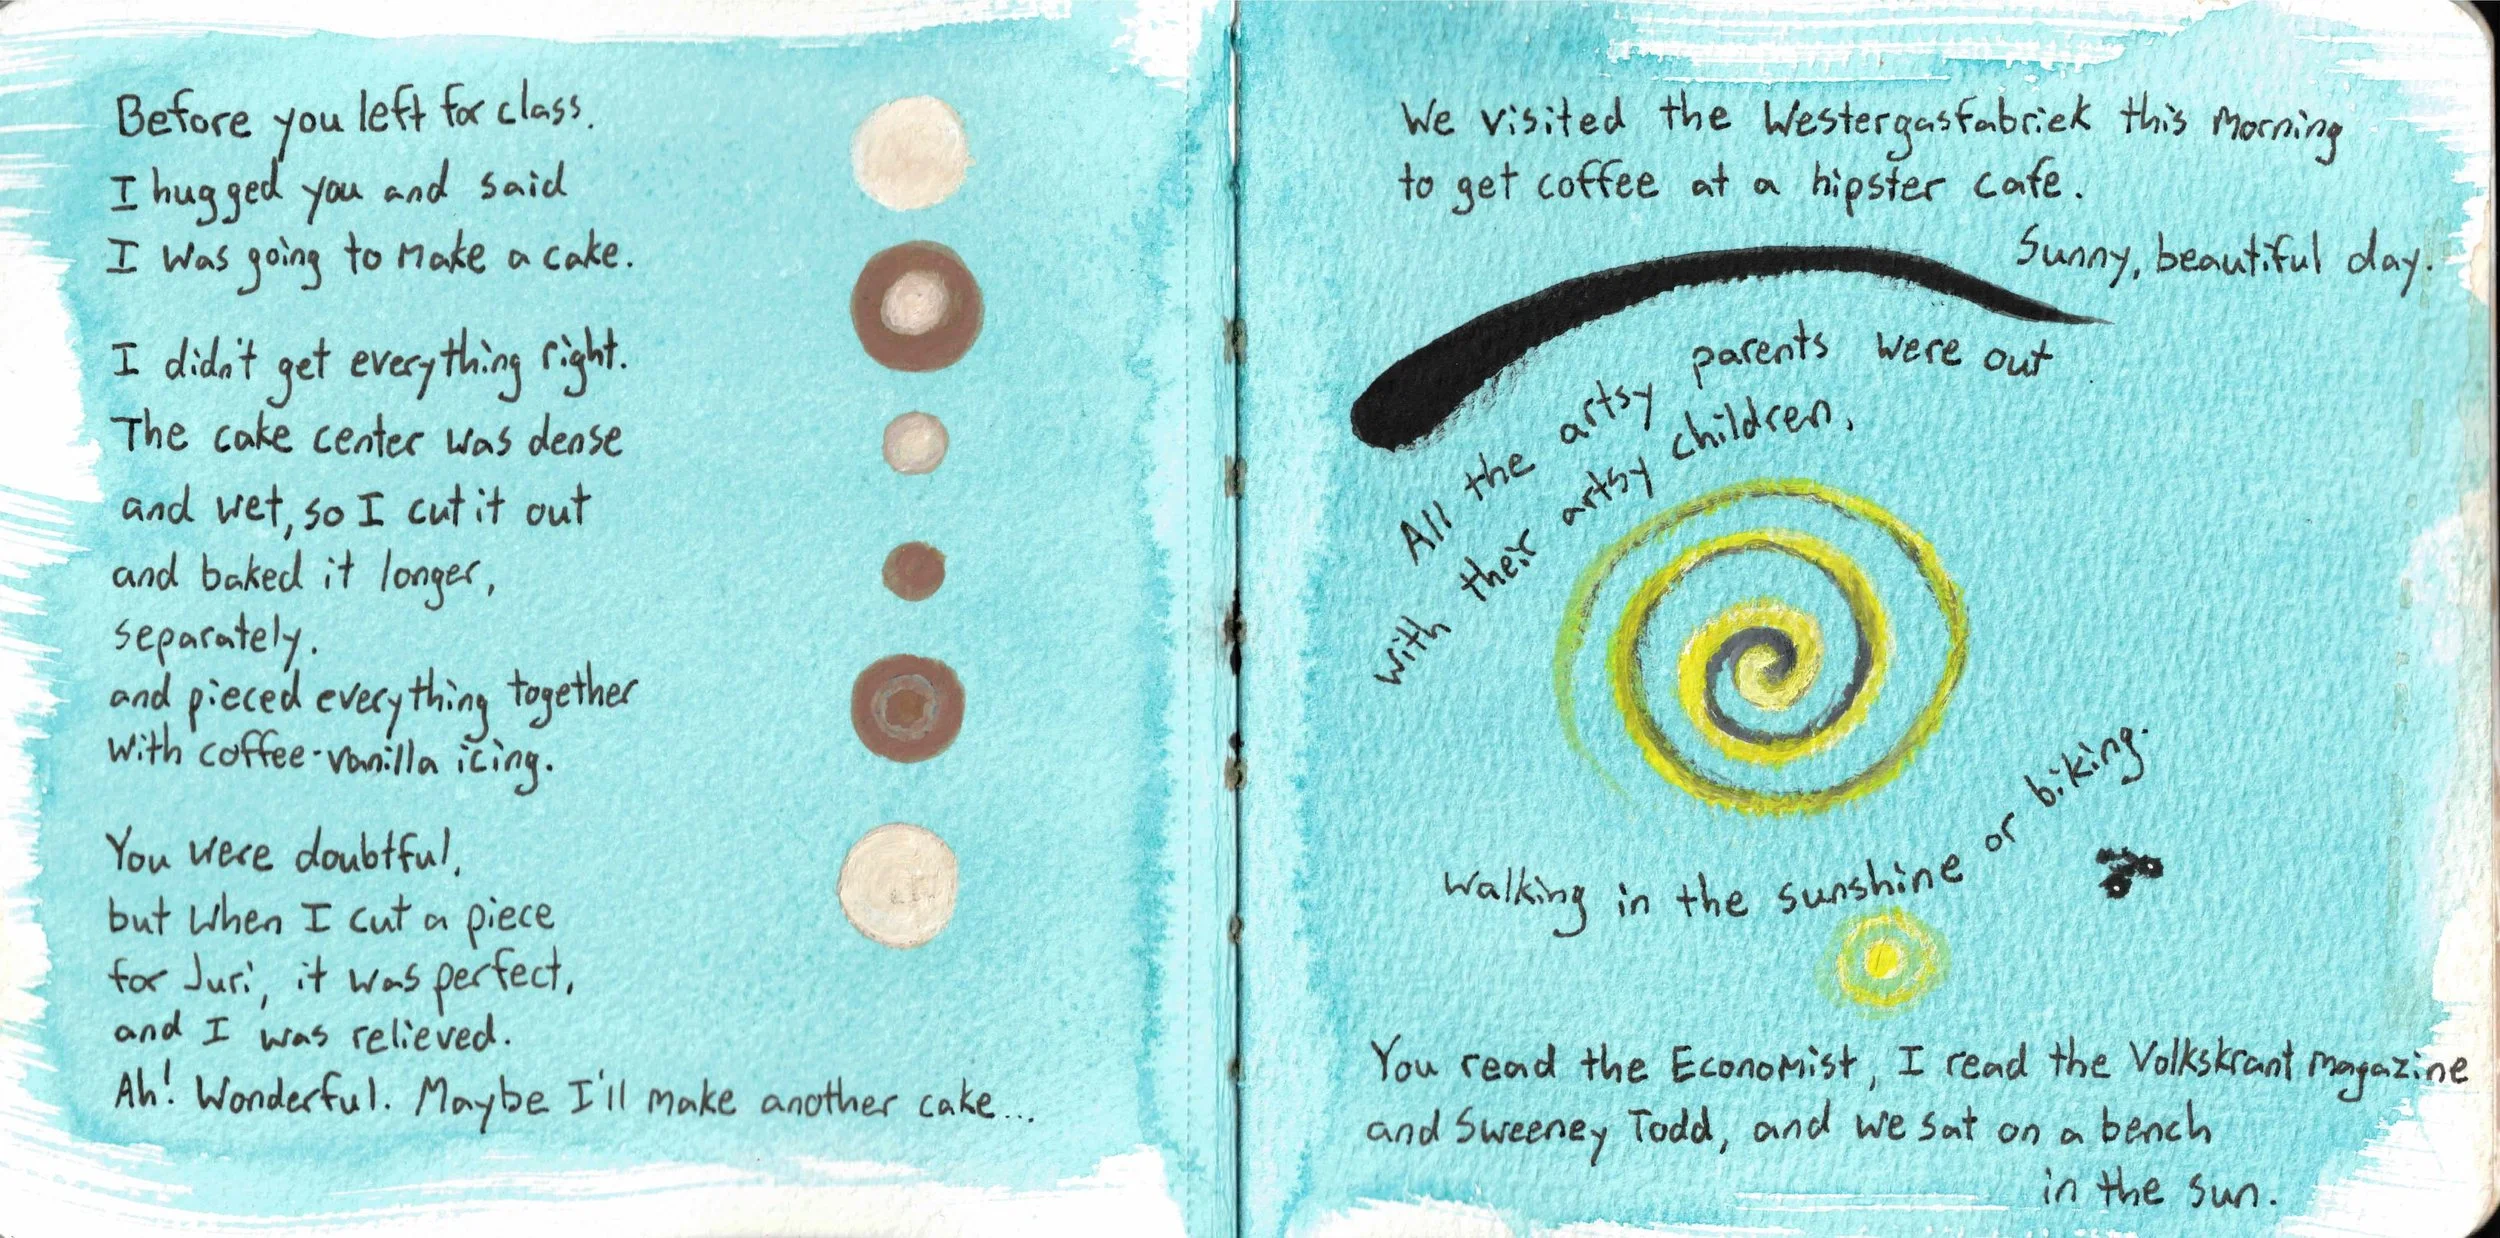 Before you left for class.
I hugged you and said
I was going to make a cake.
I didn't get everything right.
The cake center was dense
and wet, so I cut it out
and baked it longer,
separately.
and pieced everything together
with coffee-vanilla icing.
You were doubtful,
but when I cut a piece
for Juri, it was perfect,
and I was relieved.
Ah! Wonderful. Maybe I'll make another cake...
We visited the Westergasfabriek this morning
to get coffee at a hipster cafe.
Sunny, beautiful day.
All the artsy parents were out
with their artsy children,
walking in the sunshine or biking.
You read the Economist, I read the Volkskrant magazine
and Sweeney Todd, and we sat on a bench
in the sun.